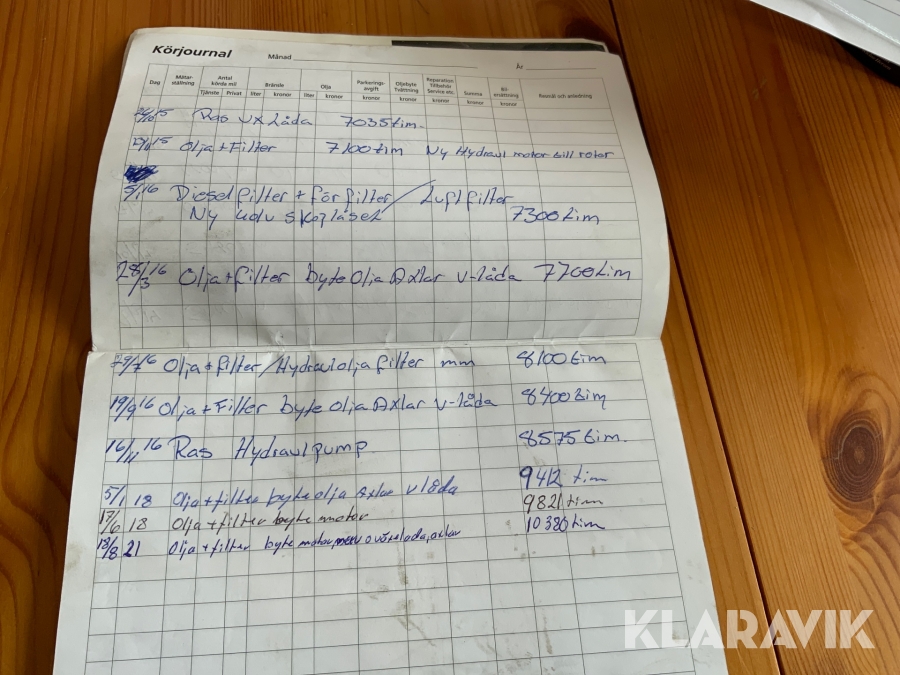 Körjournal
Månad
År
Dag Mätarställning Antal körda mil Bränsle Olja Parkeringsavgift Oljebyte Tvättning Reparation Tillbehör Service etc. Summa Bilersättning Resmål och anledning
Tjänste Privat liter kronor liter kronor kronor kronor kronor kronor kronor
15 Ras vxlåda 7035 tim.
15 Olja + Filter 7100 tim Ny Hydraul motor till rotor
5/1 16 Dieselfilter + förfilter / Luftfilter
Ny 7300 tim
28/3 16 Olja + filter byte Olja Axlar v-låda 7700 tim
29/7 16 Olja + filter / Hydraulolja filter mm 8100 tim
19/9 16 Olja + Filter byte olja Axlar v-låda 8400 tim
16/11 16 Ras Hydraulpump 8575 tim.
5/1 18 Olja + filter byte olja axlar v låda 9412 tim
17/6 18 Olja + filter byte motor 9821 tim
18/8 21 olja + filter byte motor axlar tim
KLARAVIK